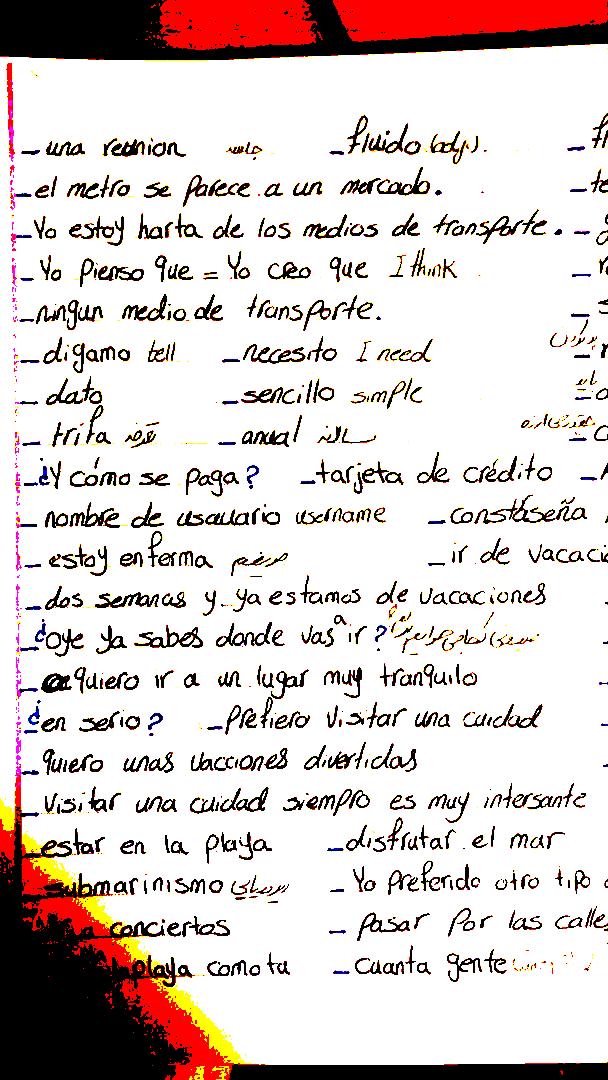 _ una reunion جلسه _ fluido (body).
_ el metro se parece a un mercado.
_ Yo estoy harta de los medios de transporte.
_ Yo pienso que = Yo creo que I think
_ ningun medio de transporte.
_ digamo tell _ necesito I need
_ dato _ sencillo simple
_ trifa _ anual سالانه
_ ¿Y cómo se paga? _ tarjeta de crédito
_ nombre de usauario username _ constaseña
_ estoy enferma مریضم _ ir de vacaci
_ dos semanas y ya estamos de vacaciones
¿oye ya sabes donde vas a ir?
_ quiero ir a un lugar muy tranquilo
¿en serio? _ Prefiero visitar una cuidad
_ quiero unas vacciones divertidas
_ visitar una cuidad siempro es muy intersante
_ estar en la playa _ disfrutar el mar
submarinismo _ Yo preferido otro tipo
a conciertos _ pasar por las calles
playa como tu _ cuanta gente